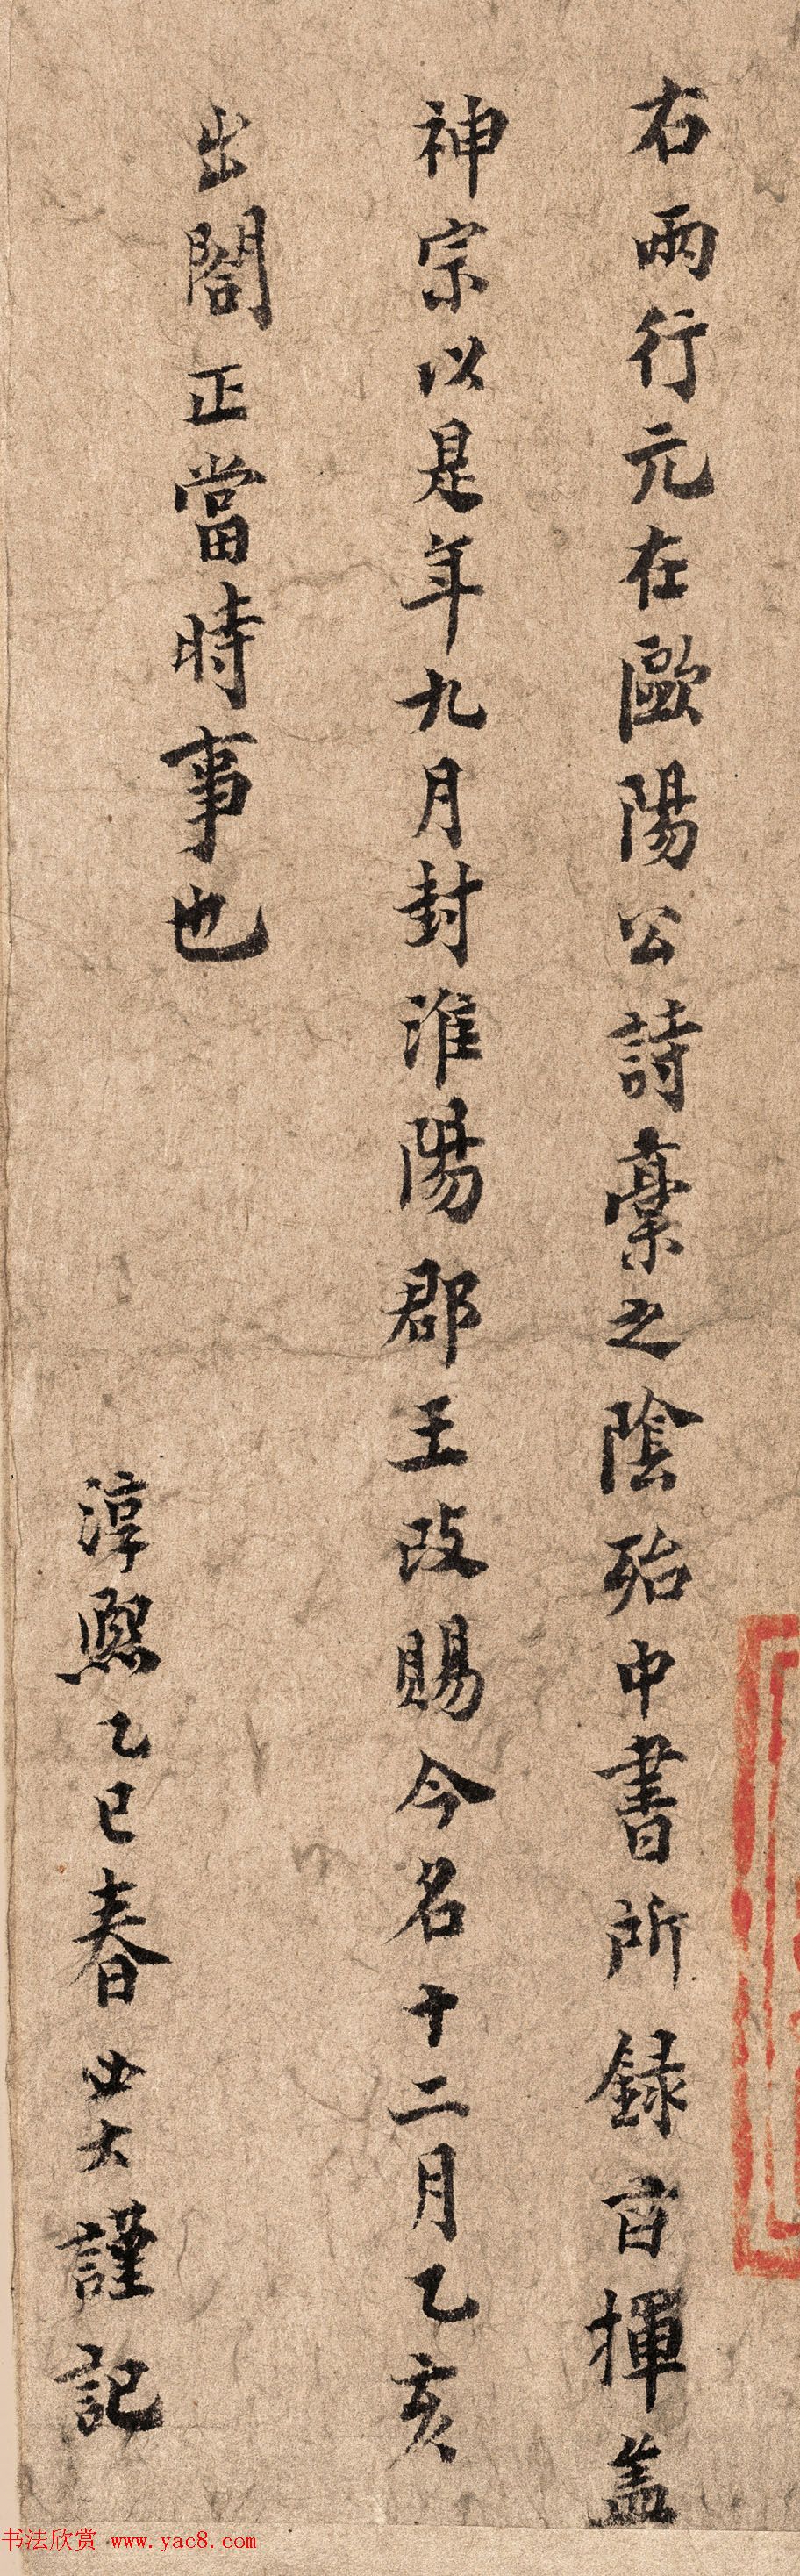 右兩行元在歐陽公詩藁之陰殆中書所録㫖揮盖
神宗以是年九月封淮陽郡王改賜今名十二月乙亥
出閤正當時事也
淳熙乙巳春 必大謹記
书法欣赏 www.yac8.com